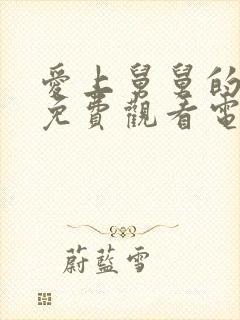 愛上舅舅的
免費觀看電
蔚藍雪